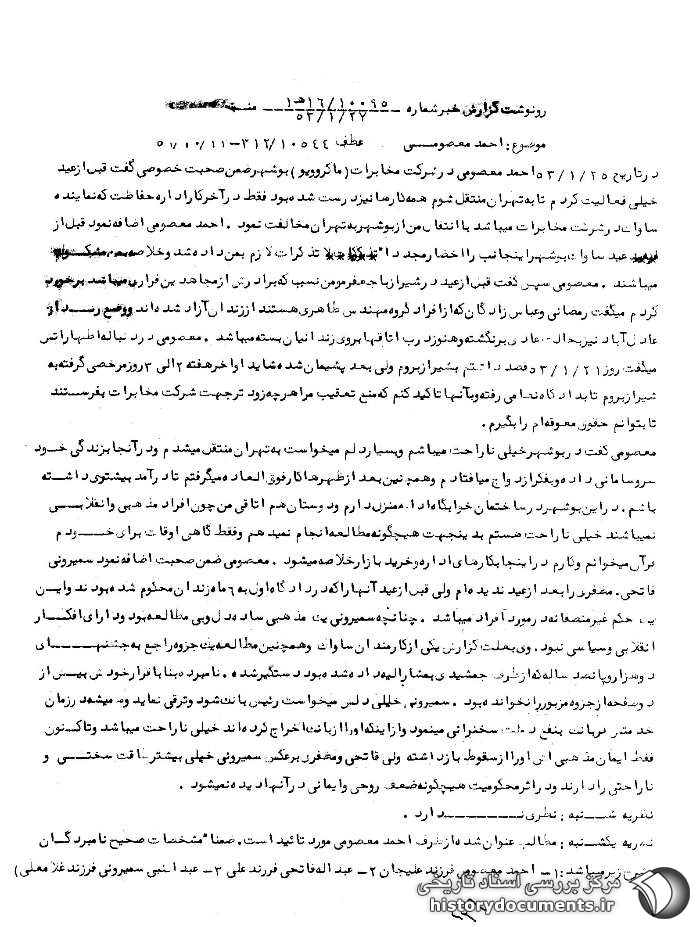 رونوشت گزارش خبر شماره ۱۶/۱۰۰۹۵ هـ ۱
۵۳/۱/۲۷
موضوع : احمد معصومی عطف ۱۰۵۴۴/۳۱۲-
در تاریخ ۵۳/۱/۲۵ احمد معصومی در شرکت مخابرات (ماکروویو) بوشهر ضمن صحبت خصوصی گفت قبل از عید
خیلی فعالیت کردم تا به تهران منتقل شوم همه کارها نیز درست شده بود فقط در آخر کار اداره حفاظت که نماینده
ساواک در شرکت مخابرات میباشد با انتقال من از بوشهر به تهران مخالفت نمود . احمد معصومی اضافه نمود قبل از
عید ساواک بوشهر اینجانب را احضار مجدد تذکرات لازم بمن داده شد و خلاصه
میباشند . معصومی سپس گفت قبل از عید در شیراز با جعفر مومن نسب که برادرش از مجاهدین فراری میباشد برخورد
کردم میگفت رمضانی و عباس زادگان که از افراد گروه مهندس طاهری هستند از زندان آزاد شده اند و وضع
عادل آباد نیز بحالت عادی برنگشته و هنوز درب اتاقها بروی زندانیان بسته میباشد . معصومی در دنباله اظهاراتش
میگفت روز ۵۳/۱/۲۱ قصد داشتم بشیراز بروم ولی بعد پشیمان شدم شاید اواخر هفته ۲ الی ۳ روز مرخصی گرفته به
شیراز بروم تا بدادگاه نظامی رفته و بآنها تاکید کنم که منع تعقیب مرا هرچه زودتر جهت شرکت مخابرات بفرستند
تا بتوانم حقوق معوقه ام را بگیرم .
معصومی گفت در بوشهر خیلی ناراحت میباشم و بسیار دلم میخواست به تهران منتقل میشدم و در آنجا بزندگی خود
سر و سامانی داده و بفکر ازدواج میافتادم و همچنین بعد از ظهرها کار فوق العاده میگرفتم تا درآمد بیشتری داشته
باشم . در این بوشهر در ساختمان خوابگاه اداره منزل دارم و دوستان هم اتاقی من چون افراد مذهبی و انقلابی
نمیباشند خیلی ناراحت هستم بدینجهت هیچگونه مطالعه انجام نمیدهم و فقط گاهی اوقات برای خودم
قرآن میخوانم و کارم در اینجا بکارهای اداره و خرید بازار خلاصه میشود . معصومی ضمن صحبت اضافه نمود سمیرونی
فاتحی . مظفری را بعد از عید ندیده ام ولی قبل از عید آنها را که در دادگاه اول به ۶ ماه زندان محکوم شده بودند و این
یک حکم غیر منصفانه در مورد آفراد میباشد . چنانچه سمیرونی یک مذهبی ساده دل و بی مطالعه بود و دارای افکار
انقلابی و سیاسی نبود . وی بعلت گزارش یکی از کارمندان ساواک و همچنین مطالعه یک جزوه راجع به جشنهای
دوهزار و پانصد ساله که از طرف جمشیدی بمشارالیه داده شده بود دستگیر شده . نامبرده بنا باقرار خودش بیش از
دو صفحه از جزوه مزبور را نخوانده بود . سمیرونی خیلی دلش میخواست رئیس بانک شود و ترقی نماید و همیشه در زمان
خدمتش در بانک بنفع دولت سخنرانی مینمود و از اینکه او را از بانک اخراج کرده اند خیلی ناراحت میباشد و تاکنون
فقط ایمان مذهبی اش او را از سقوط بازداشته ولی فاتحی و مظفری برعکس سمیرونی خیلی بیشتر طاقت سختی و
ناراحتی را دارند و در اثر محکومیت هیچگونه ضعف روحی و ایمانی در آنها دیده نمیشود .
نظریه شنبه : نظری ندارد .
نظریه یکشنبه : مطالب عنوان شده از طرف احمد معصومی مورد تائید است . ضمنا مشخصات صحیح نامبردگان
بشرح زیر میباشد : ۱- احمد معصومی فرزند علیجان ۲- عبداله فاتحی فرزند علی ۳- عبدالنبی سمیرونی فرزند غلامعلی)
مرکز بررسی اسناد تاریخی
historydocuments.ir